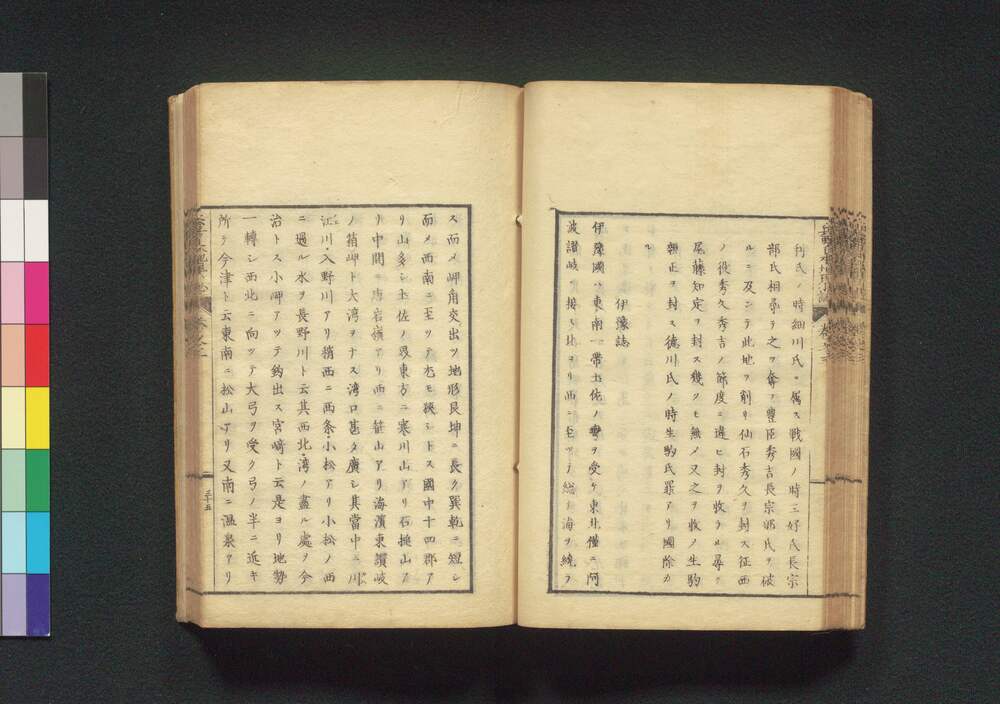 利氏ノ時細川氏ニ属ス戰國ノ時三好氏長宗
部氏相尋テ之ヲ奪フ豐臣秀吉長宗部氏ヲ破
ルニ及ンテ此地ヲ削リ仙石秀久ヲ封ス征西
ノ役秀久秀吉ノ節度ニ違ヒ封ヲ收ラル尋テ
尾藤知定ヲ封ス幾クモ無メ又之ヲ收メ生駒
親正ヲ封ス德川氏ノ時生駒氏罪アリ國除カ
ル
伊豫誌
伊豫國ハ東南一帶土佐ノ ヲ受ケ東北僅ニ阿
波讃岐ニ接シ北ヨリ西ニ至ツテ総テ海ヲ繞ラ
ス而メ岬角交出ツ地形艮坤ニ長ク巽乾ニ短シ
而メ西南ニ至ツテ尤モ狹シトス國中十四郡ア
リ山多シ土佐ノ界東方ニ寒川山アリ石鎚山ア
リ中間ニ唐岩嶺アリ西ニ笹山アリ海濱東讃岐
ノ箱岬ト大湾ヲナス湾口甚タ廣シ其當中ニ川
江川・入野川アリ稍西ニ西条・小松アリ小松ノ西
ニ過ル水ヲ長野川ト云其西北・湾ノ盡ル處ヲ今
治トス小岬アツテ鈎出ス宮﨑ト云是ヨリ地勢
一轉シ西北ニ向ツテ大弓ヲ受ク弓ノ半ニ近キ
所ヲ今津ト云東南ニ松山アリ又南ニ温泉アリ
三十五